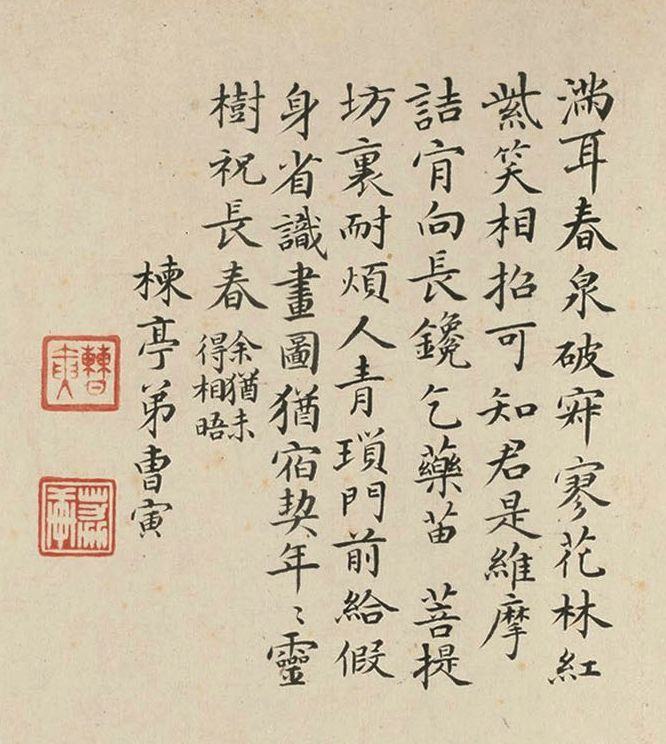 滿耳春泉破寂寥花林紅
紫笑相招可知君是維摩
詰肯向長鑱乞藥苗　菩提
坊裏耐煩人青瑣門前給假
身省識畫圖猶宿契年〻靈
樹祝長春余猶未
得相晤
楝亭弟曹寅
曹寅
荔軒